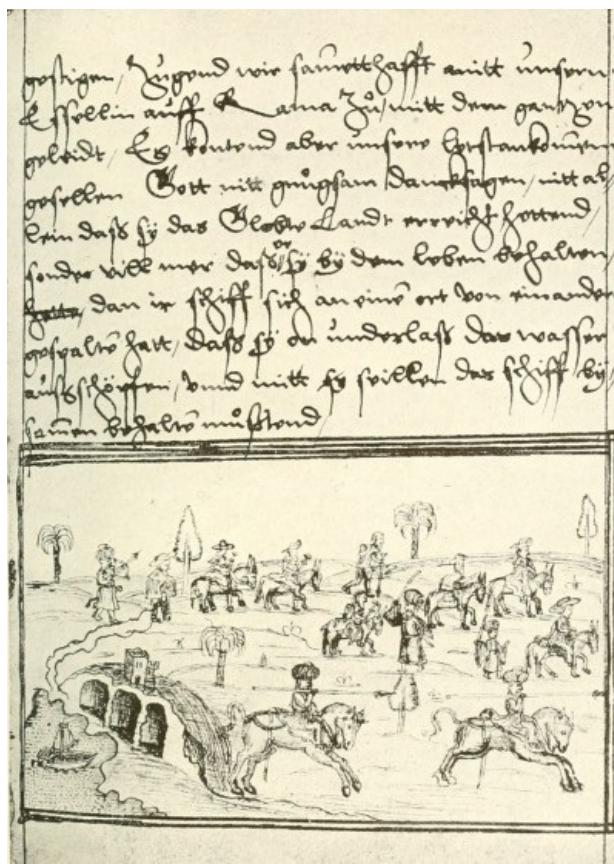 gestigen, Zugend wir sam̄etthafft mitt unsern
Essellin auff Rama Zů, mitt dem gantzen
geleidt, Es kontend aber unsere letstankom̄en
gesellen Gott nitt gnůgsam dancksagen, nitt al,
lein daß sÿ das Globte Landt erreicht hettend,
sonder vill mer daß sÿ bÿ dem leben behalten,
dan ir schiff sich an einē ort von einander
gespaltē hatt, daß sÿ on underlaß das wasser
außschöpffen, unnd mitt seillen das schiff bÿ,
samen behaltē můßtend